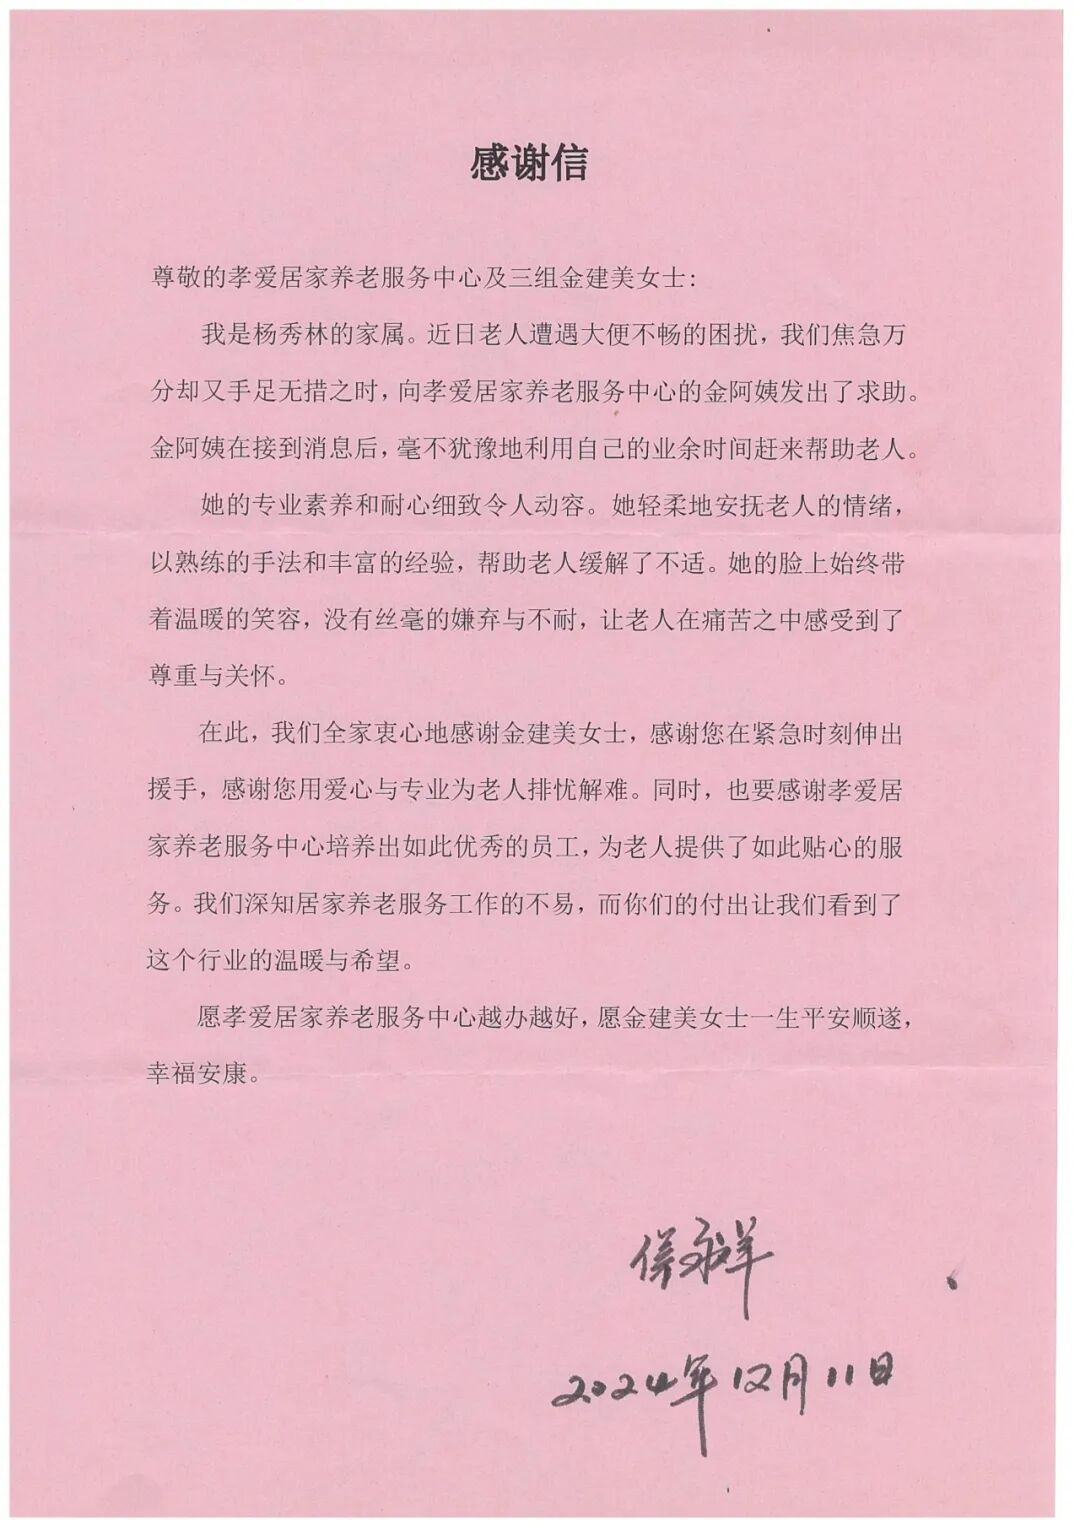 感谢信
尊敬的孝爱居家养老服务中心及三组金建美女士:
我是杨秀林的家属。近日老人遭遇大便不畅的困扰，我们焦急万
分却又手足无措之时，向孝爱居家养老服务中心的金阿姨发出了求助。
金阿姨在接到消息后，毫不犹豫地利用自己的业余时间赶来帮助老人。
她的专业素养和耐心细致令人动容。她轻柔地安抚老人的情绪，
以熟练的手法和丰富的经验，帮助老人缓解了不适。她的脸上始终带
着温暖的笑容，没有丝毫的嫌弃与不耐，让老人在痛苦之中感受到了
尊重与关怀。
在此，我们全家衷心地感谢金建美女士，感谢您在紧急时刻伸出
援手，感谢您用爱心与专业为老人排忧解难。同时，也要感谢孝爱居
家养老服务中心培养出如此优秀的员工，为老人提供了如此贴心的服
务。我们深知居家养老服务工作的不易，而你们的付出让我们看到了
这个行业的温暖与希望。
愿孝爱居家养老服务中心越办越好，愿金建美女士一生平安顺遂，
幸福安康。
永祥
2024年12月11日